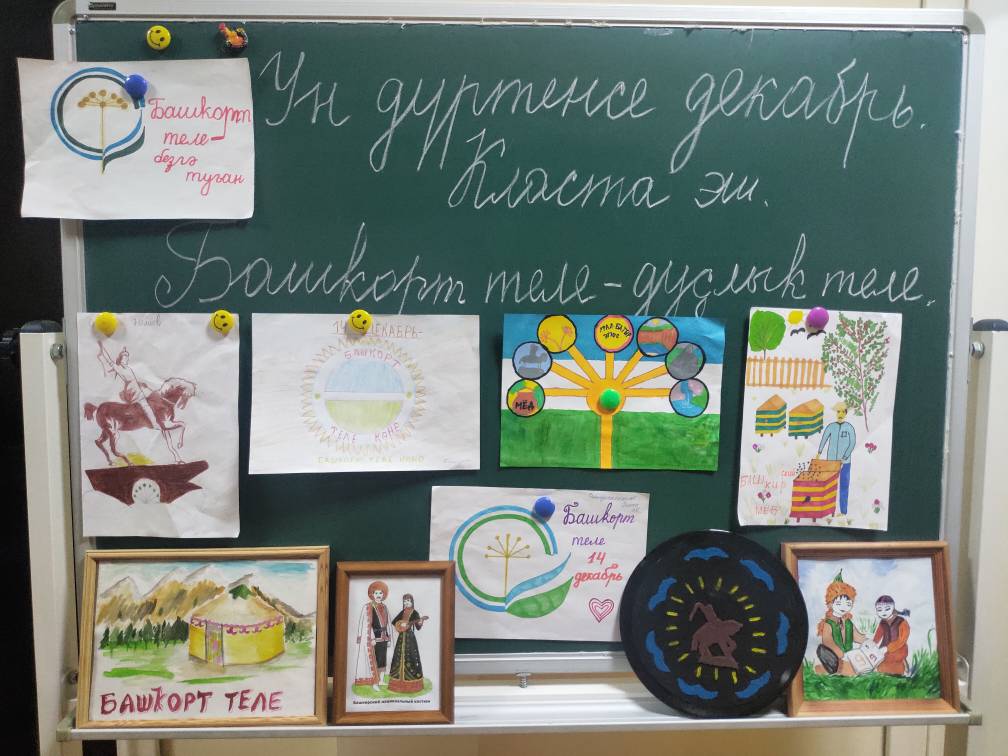 Ун дүртенсе декабрь.
Класта эш.
Башҡорт теле - дуҫлыҡ теле.
Башҡорт
теле-
беҙгә
туған
14 ДЕКАБРЬ-
БАШКОРТ
ТЕЛЕ КӨНӨ
БАШКОРТ ТЕЛЕ КӨНӨ
УРАЛ БАТЫР
ЭПОС
МЁД
БАШКИРСКИЙ
МЁД
Башҡорт
теле
14
декабрь
БАШҠОРТ ТЕЛЕ
Башкирский национальный костюм